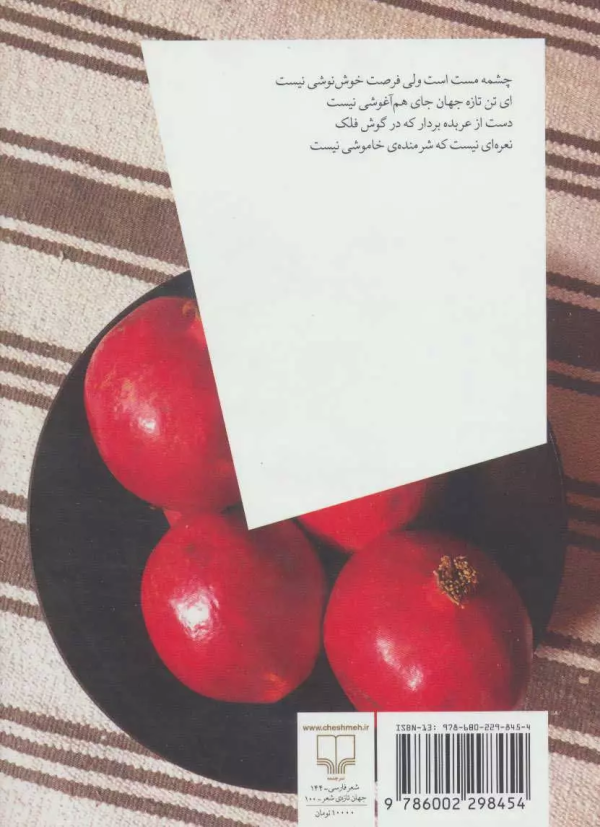 چشمه مست است ولی فرصت خوش‌نوشی نیست
ای تن تازه جهان جای هم‌آغوشی نیست
دست از عربده بردار که در گوش فلک
نعره‌ای نیست که شرمنده‌ی خاموشی نیست
www.cheshmeh.ir
شعر فارسی-۱۴۴
جهان تازه‌ی شعر-۱۰۰
۱۰۰۰۰ تومان
ISBN-13: 978-680-229-845-4
9 786002 298454